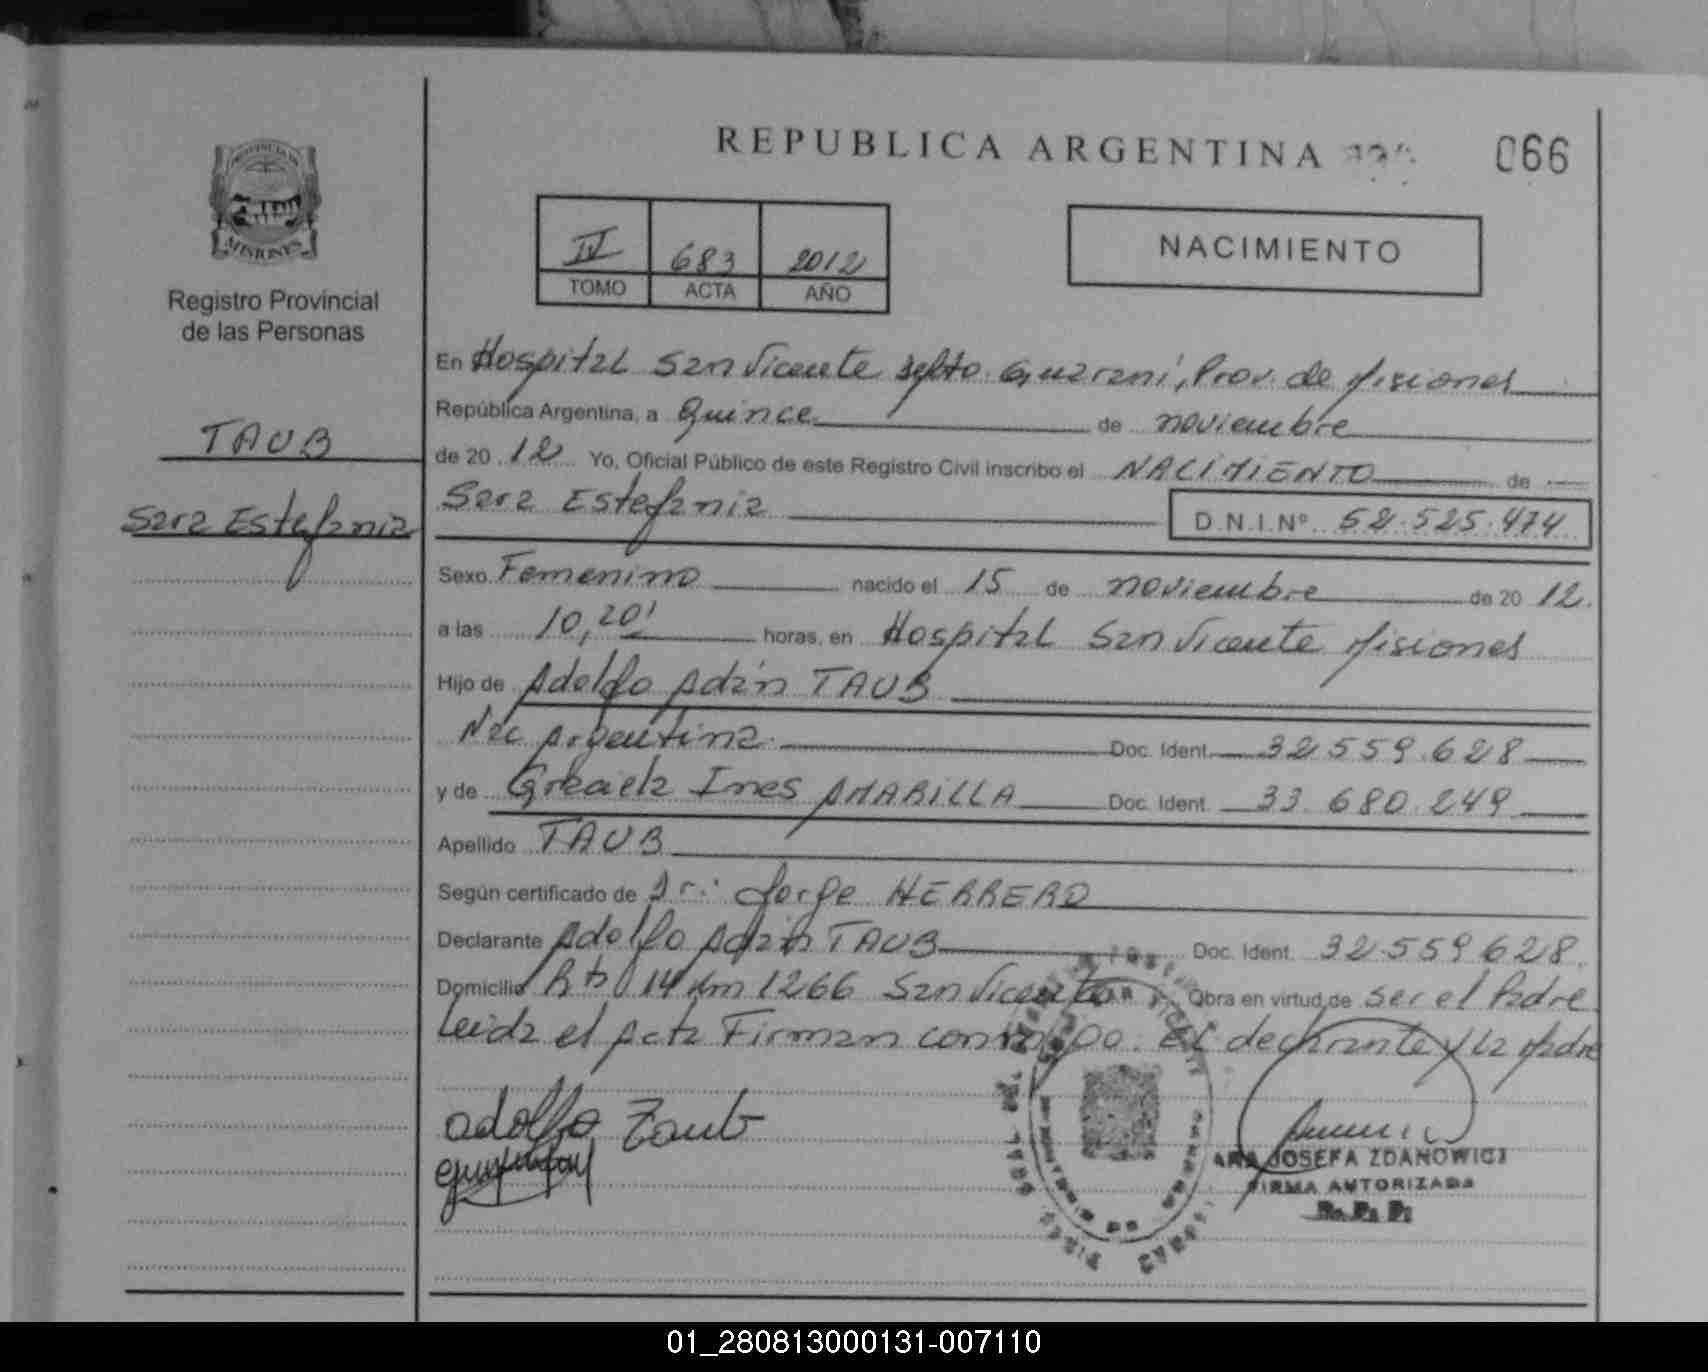 REPUBLICA ARGENTINA
066
PROVINCIA DE
MISIONES
Registro Provincial
de las Personas
TAUB
Sara Estefania
IV 683 2012
TOMO ACTA AÑO
NACIMIENTO
En Hospital San Vicente Dpto. Guarani, Prov. de Misiones
República Argentina, a Quince de noviembre
de 2012 Yo, Oficial Público de este Registro Civil inscribo el NACIMIENTO de
Sara Estefania D.N.I.Nº 52.525.474
Sexo Femenino nacido el 15 de noviembre de 2012.
a las 10,20' horas, en Hospital San Vicente Misiones
Hijo de Adolfo Adán TAUB
Nac Argentina. Doc. Ident. 32.559.628
y de Graciela Ines AMARILLA Doc. Ident. 33.680.249
Apellido TAUB
Según certificado de Dr.: Jorge HERRERO
Declarante Adolfo Adán TAUB Doc. Ident. 32.559.628.
Domicilio Rta 14 Km 1266 San Vicente Obra en virtud de ser el Padre
Leida el Acta Firman conmigo. El declarante y la Madre
Adolfo Taub
ANA JOSEFA ZDANOWICZ
FIRMA AUTORIZADA
R. P. P.
01_280813000131-007110